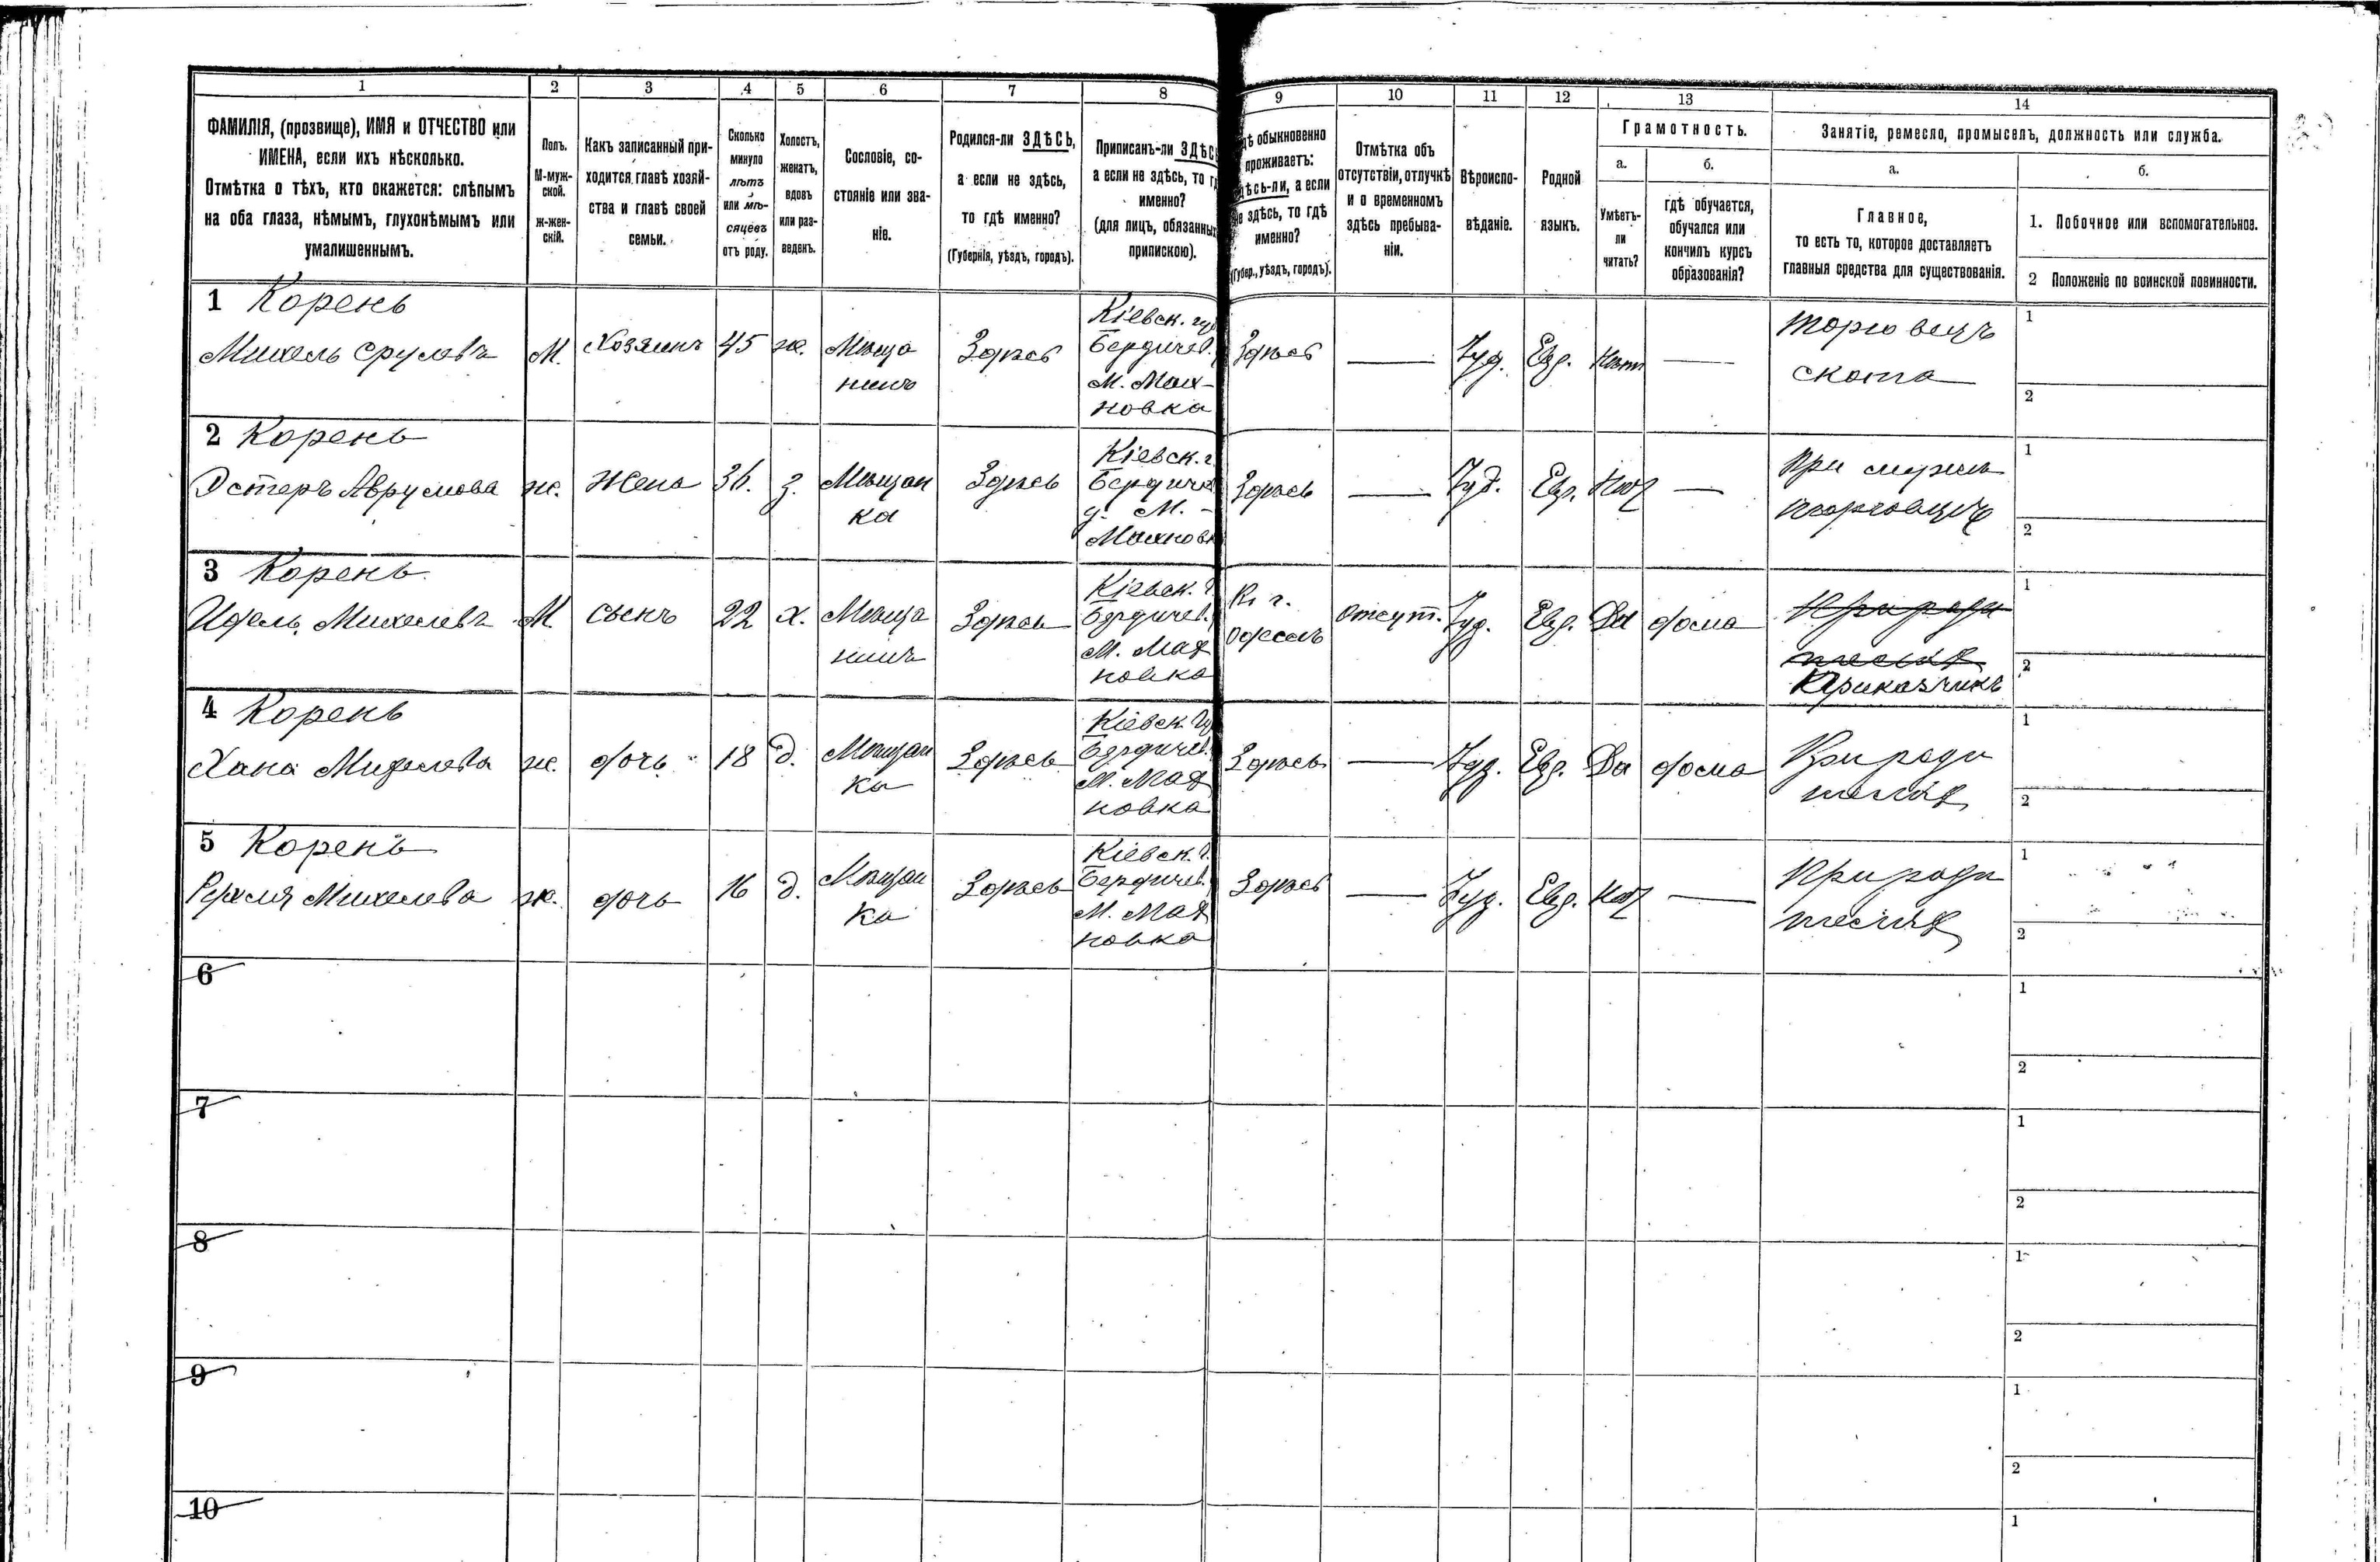 1 2 3 4 5 6 7 8 9 10 11 12 13 14
ФАМИЛІЯ, (прозвище), ИМЯ и ОТЧЕСТВО или
ИМЕНА, если ихъ нѣсколько.
Отмѣтка о тѣхъ, кто окажется: слѣпымъ
на оба глаза, нѣмымъ, глухонѣмымъ или
умалишеннымъ.
Полъ.
М-муж-
ской.
ж-жен-
скій.
Какъ записанный при-
ходится главѣ хозяй-
ства и главѣ своей
семьи.
Сколько
минуло
лѣтъ
или мѣ-
сяцевъ
отъ роду.
Холостъ,
женатъ,
вдовъ
или раз-
веденъ.
Сословіе, со-
стояніе или зва-
ніе.
Родился-ли ЗДѢСЬ,
а если не здѣсь,
то гдѣ именно?
(Губернія, уѣздъ, городъ).
Приписанъ-ли ЗДѢС
а если не здѣсь, то г
именно?
(для лицъ, обязанных
припискою).
дѣ обыкновенно
проживаетъ:
дѣсь-ли, а если
не здѣсь, то гдѣ
именно?
(Губер., уѣздъ, городъ).
Отмѣтка объ
отсутствіи, отлучкѣ
и о временномъ
здѣсь пребыва-
ніи.
Вѣроиспо-
вѣданіе.
Родной
языкъ.
Грамотность.
а.
Умѣетъ-
ли
читать?
б.
гдѣ обучается,
обучался или
кончилъ курсъ
образованія?
Занятіе, ремесло, промыселъ, должность или служба.
а.
Главное,
то есть то, которое доставляетъ
главныя средства для существованія.
б.
1. Побочное или вспомогательное.
2 Положеніе по воинской повинности.
1 Корень
Михель Срулевъ
М.
Хозяинъ
45
ж.
Мѣща
нинъ
Здѣсь
Кіевск. гу
Бердичев.
М. Мах-
новка
Здѣсь
—
Іуд.
Евр.
Нѣт
—
Торговецъ
скота
1
2
2 Корень
Эстеръ Аврумова
ж.
Жена
36.
з.
Мѣщан
ка
Здѣсь
Кіевск. г
Бердиче
у. М. -
Махнов
Здѣсь
—
Іуд.
Евр.
Нѣт
—
При мужѣ
торговцѣ
1
2
3 Корень
Идель Михелевъ
М.
сынъ
22
х.
Мѣща
нинъ
Здѣсь
Кіевск. г
Бердичев.
М. Мах
новка
Въ г.
Одессѣ
Отсут.
Іуд.
Евр.
Да
дома
При роди
теляхъ
Приказчикъ
1
2
4 Корень
Хана Михелева
ж.
дочь
18
д.
Мѣщан
ка
Здѣсь
Кіевск. гу
Бердичев.
М. Мах
новка
Здѣсь
—
Іуд.
Евр.
Да
дома
При роди
теляхъ
1
2
5 Корень
Рухля Михелева
ж.
дочь
16
д.
Мѣщан
ка
Здѣсь
Кіевск. г.
Бердичев.
М. Мах
новка
Здѣсь
—
Іуд.
Евр.
Нѣт
—
При роди
теляхъ
1
2
6
1
2
7
1
2
8
1
2
9
1
2
10
1